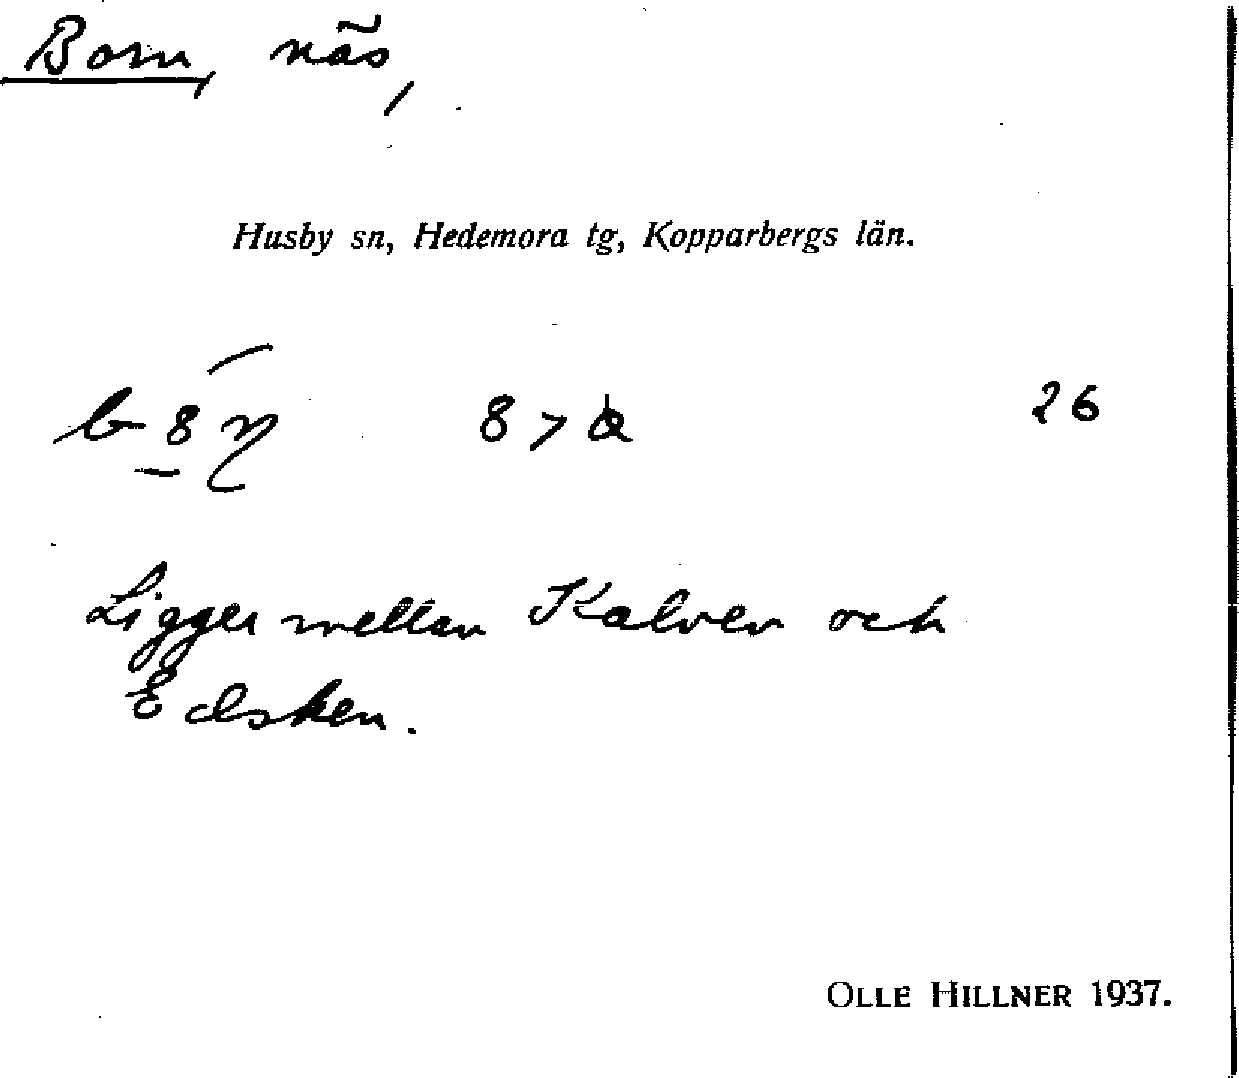 Born, näs,
Husby sn, Hedemora tg, Kopparbergs län.
8 > a 26
Ligger mellan Kalven och
Edsken.
OLLE HILLNER 1937.